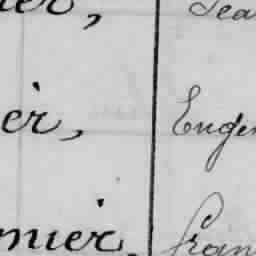 ier, Jea
er, Eugen
mier, Fran